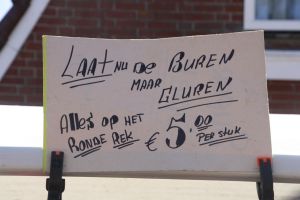 LAAT NU DE BUREN
MAAR
GLUREN
Alles op HET
RONDE REK
€ 5.00
PER STUK